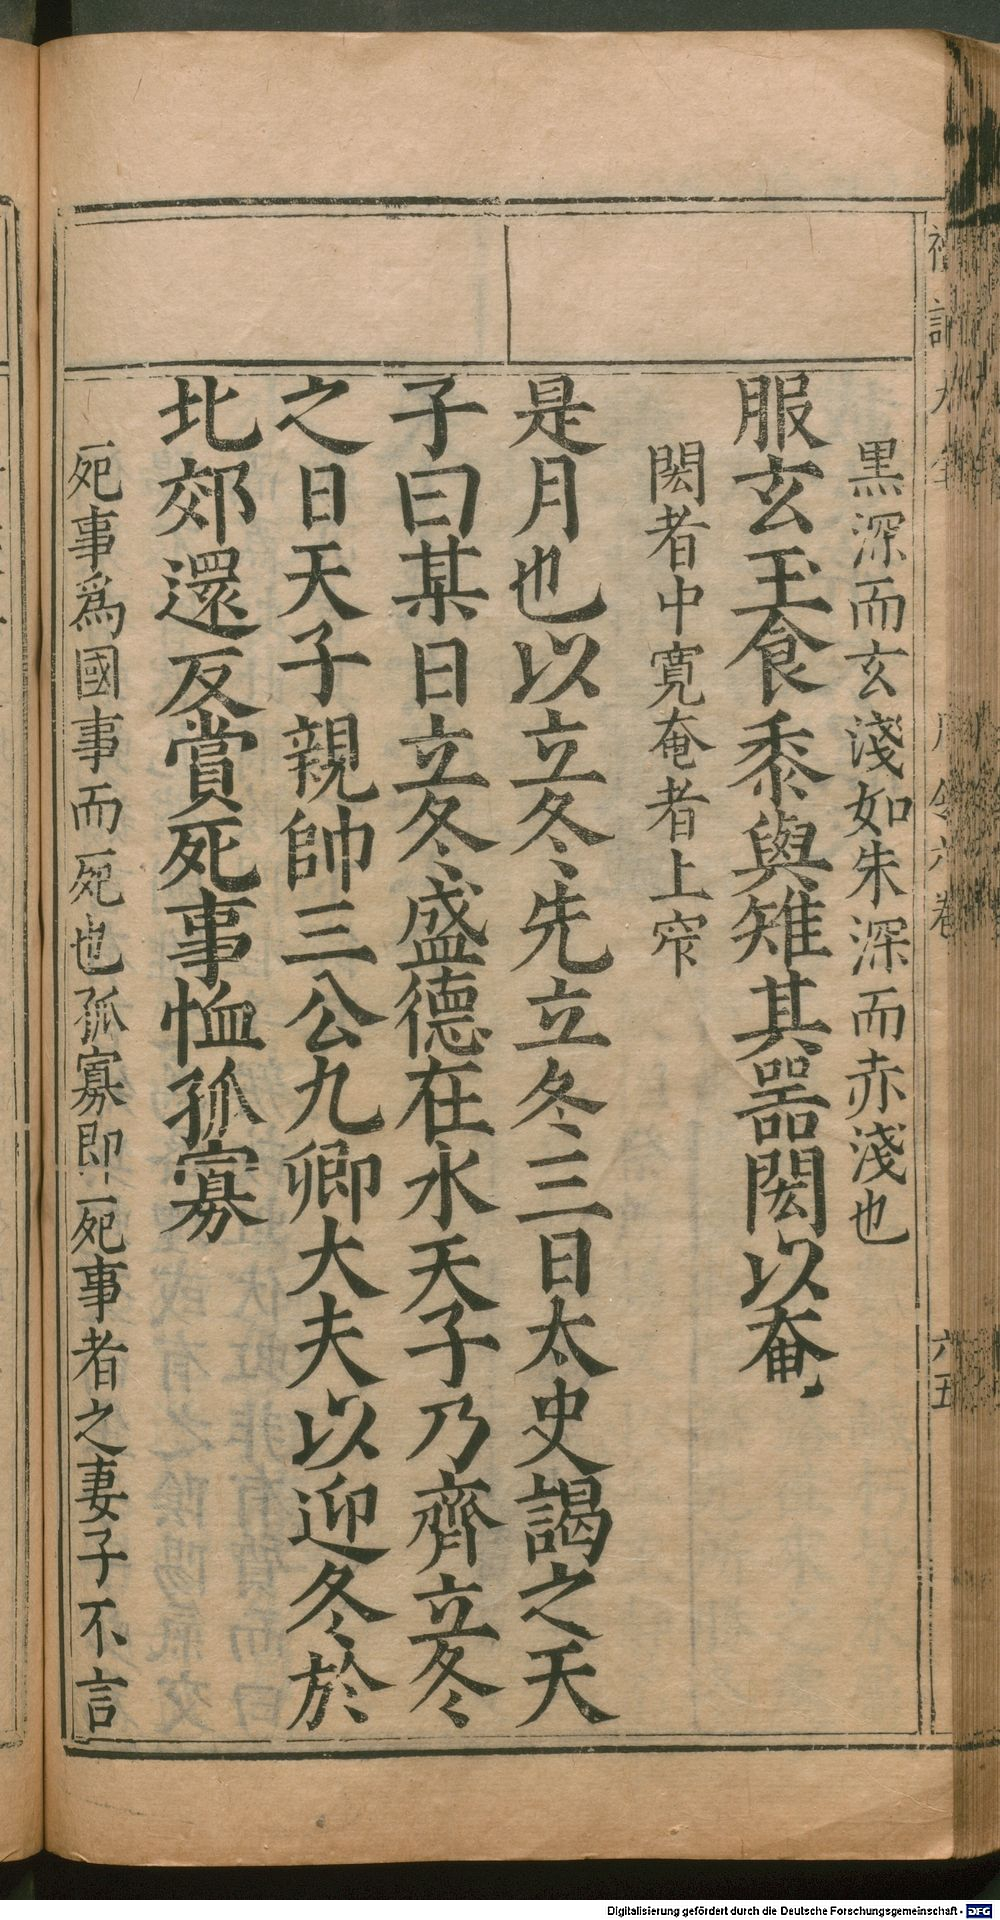 黑深而玄淺如朱深而赤淺也
服玄玉食黍與雉其器閎以奄
閎者中寬奄者上窄
是月也以立冬先立冬三日太史謁之天
子曰某日立冬盛德在水天子乃齊立冬
之日天子親帥三公九卿大夫以迎冬於
北郊還反賞死事恤孤寡
死事爲國事而死也孤寡即死事者之妻子不言
六五
Digitalisierung gefördert durch die Deutsche Forschungsgemeinschaft - DFG